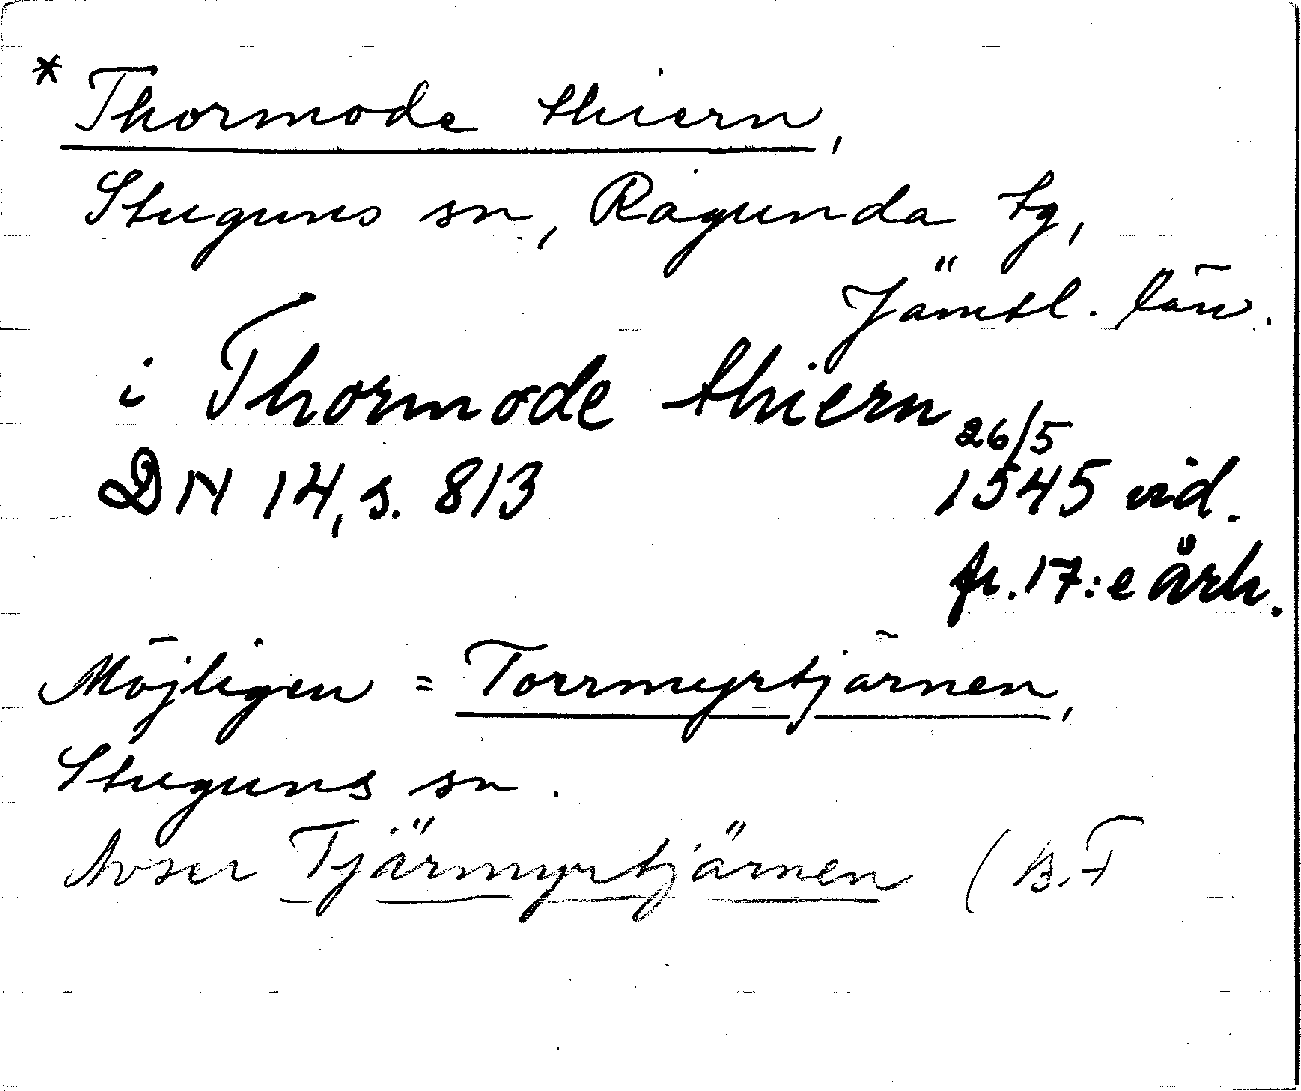 * Thormode thiern,
Stuguns sn, Ragunda tg,
Jämtl. län.
i Thormode thiern
26/5
DN 14, s. 813 1545 vid.
fr. 17:e årh.
Möjligen = Torrmyrtjärnen,
Stuguns sn.
Avser Tjärmyrtjärnen (B.F